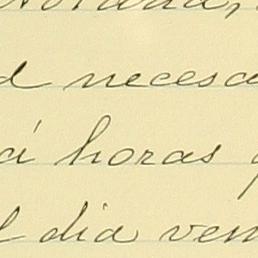 necesa
á horas
l dia ven